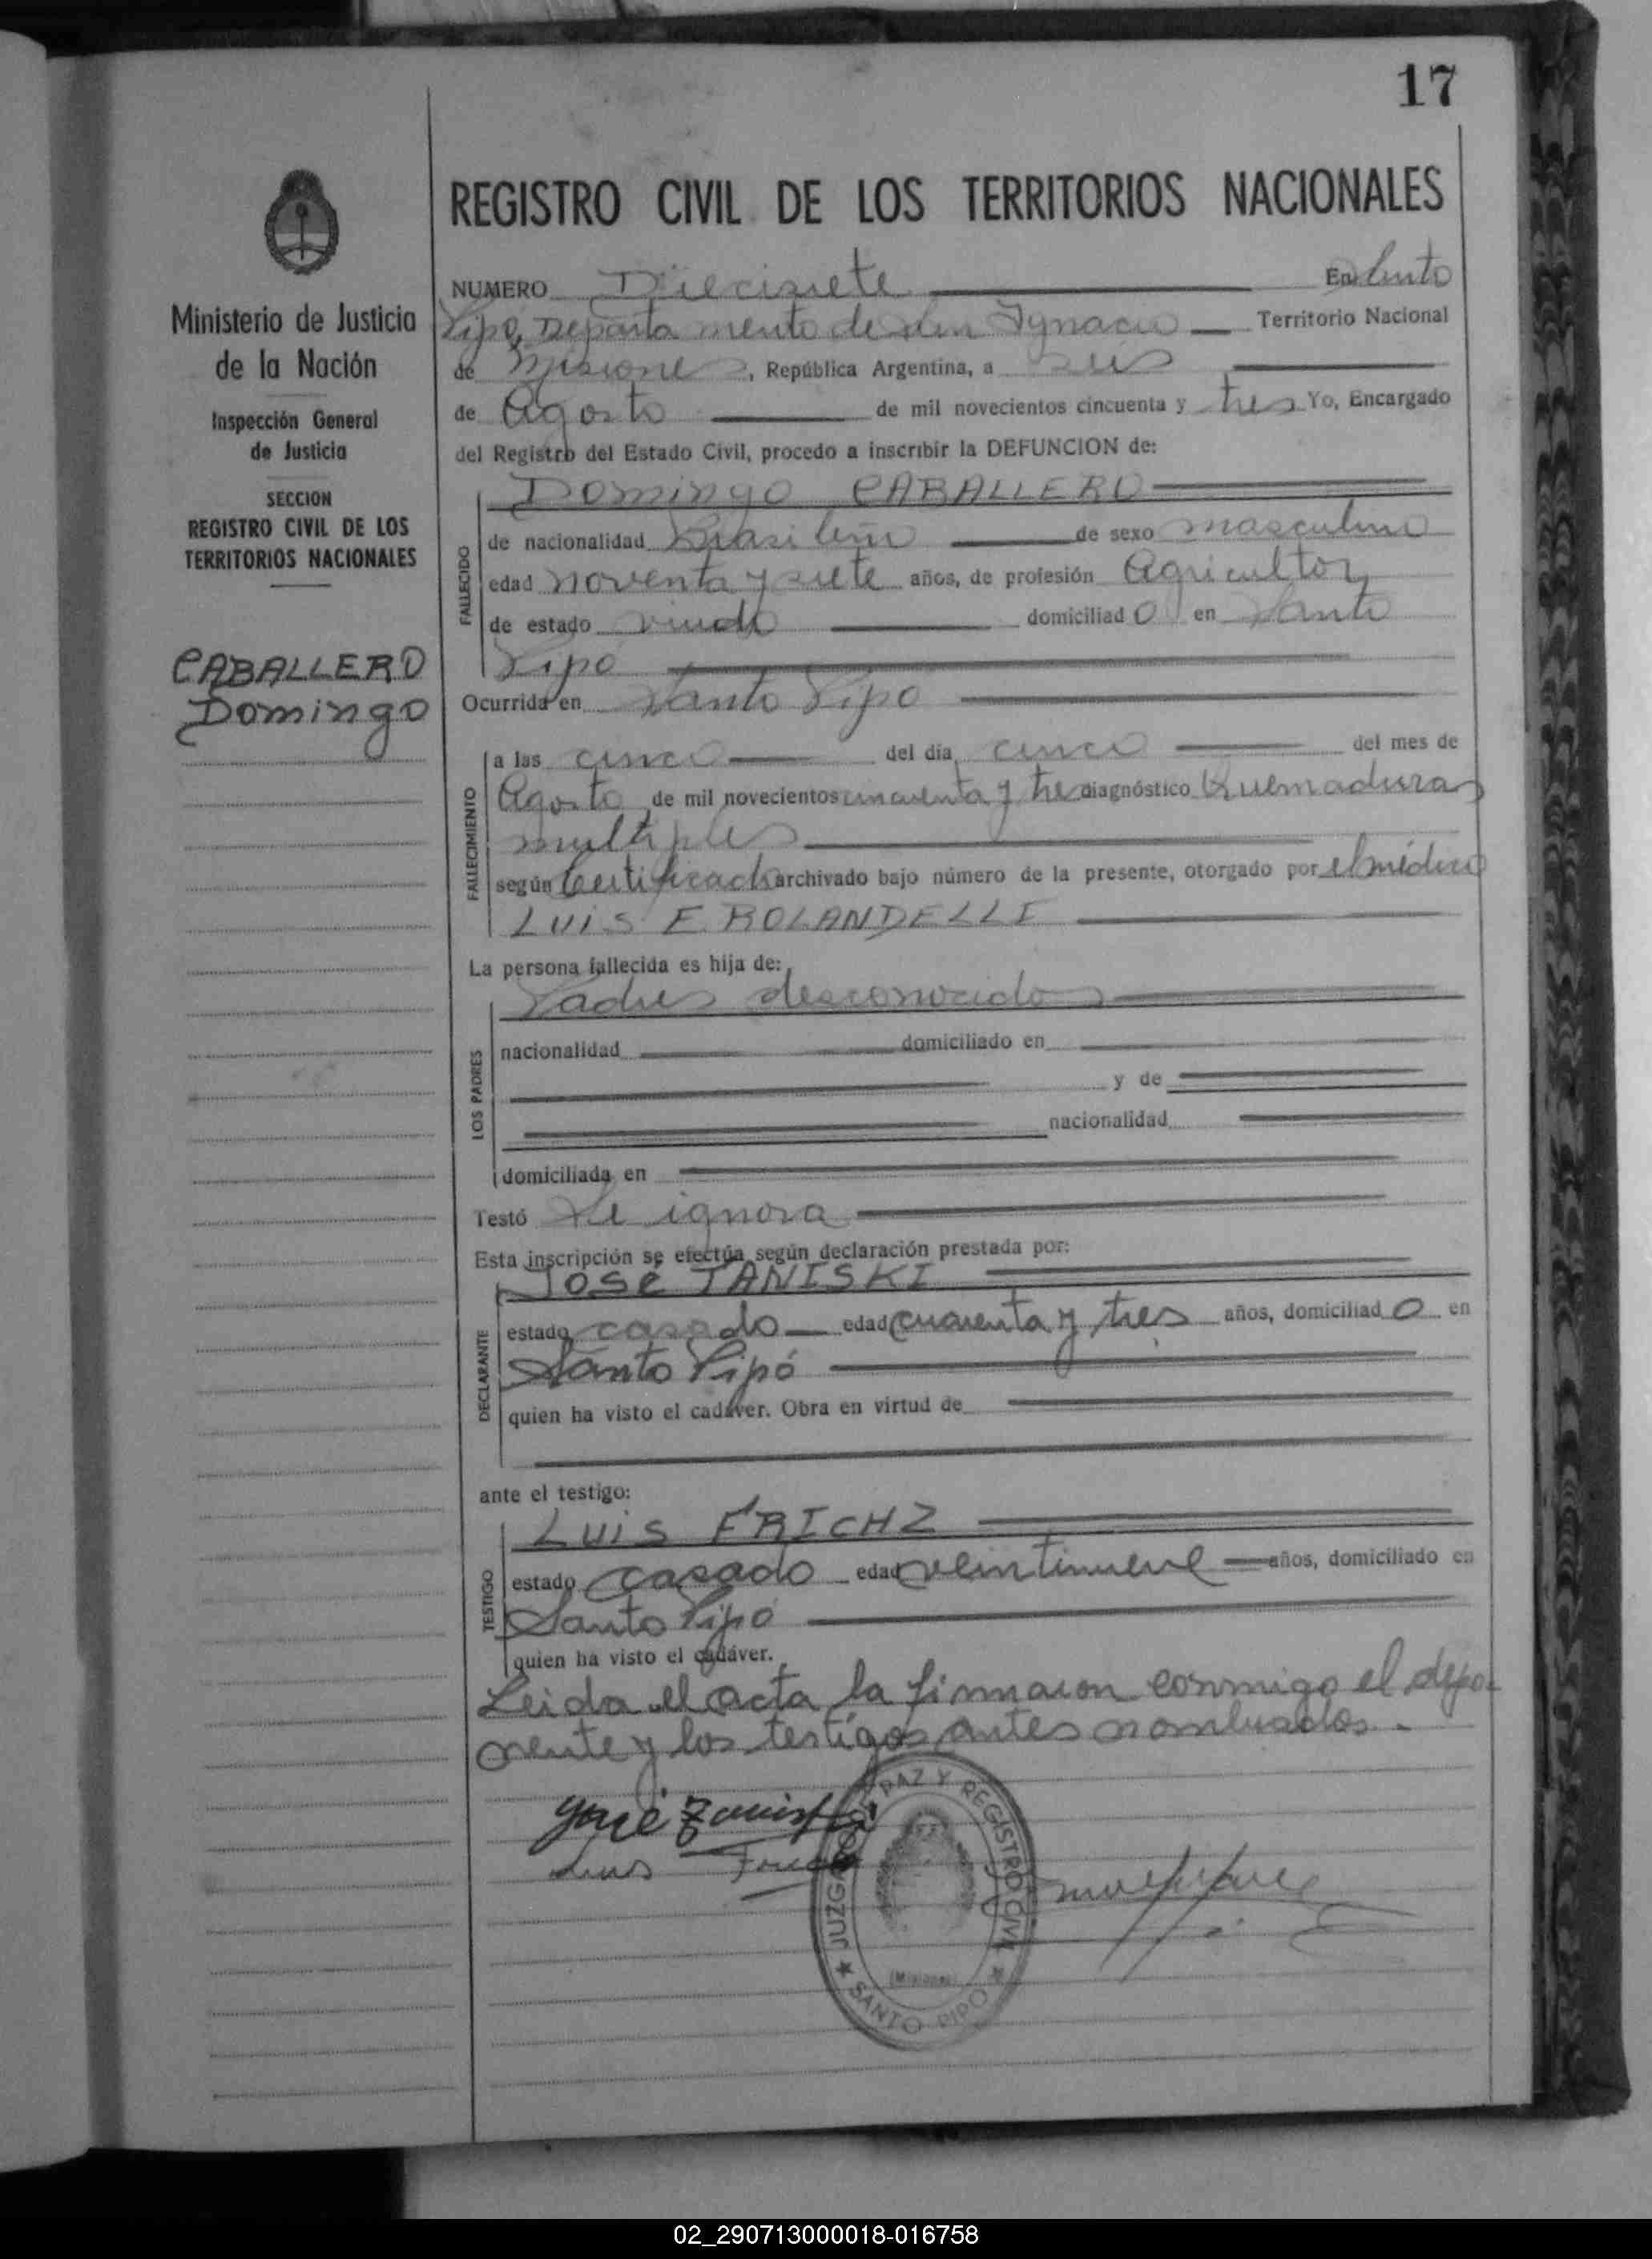 17
REGISTRO CIVIL DE LOS TERRITORIOS NACIONALES
Ministerio de Justicia
de la Nación
Inspección General
de Justicia
SECCION
REGISTRO CIVIL DE LOS
TERRITORIOS NACIONALES
CABALLERO
Domingo
NUMERO Diecisiete En Santo
Pipó, Departamento de San Ignacio Territorio Nacional
de Misiones, República Argentina, a seis
de Agosto de mil novecientos cincuenta y tres Yo, Encargado
del Registro del Estado Civil, procedo a inscribir la DEFUNCION de:
FALLECIDO
Domingo CABALLERO
de nacionalidad Brasileño de sexo masculino
edad noventa y siete años, de profesión Agricultor,
de estado viudo domiciliado en Santo
Pipó
Ocurrida en Santo Pipo
FALLECIMIENTO
a las cinco del día cinco del mes de
Agosto de mil novecientos cincuenta y tres diagnóstico Quemaduras
multiples
según Certificado archivado bajo número de la presente, otorgado por el médico
LUIS E. ROLANDELLI
La persona fallecida es hija de:
LOS PADRES
Padres desconocidos
nacionalidad domiciliado en
y de
nacionalidad
domiciliada en
Testó Se ignora
Esta inscripción se efectúa según declaración prestada por:
DECLARANTE
JOSÉ TANISKI
estado casado edad cuarenta y tres años, domiciliado en
Santo Pipó
quien ha visto el cadáver. Obra en virtud de
ante el testigo:
TESTIGO
LUIS FRICHZ
estado casado edad veintinueve años, domiciliado en
Santo Pipó
quien ha visto el cadáver.
Leida el acta la firmaron conmigo el depo-
nente y los testigos antes nombrados.-
José
Luis
JUZGADO DE PAZ Y REGISTRO CIVIL
(Misiones)
SANTO PIPO
02_290713000018-016758